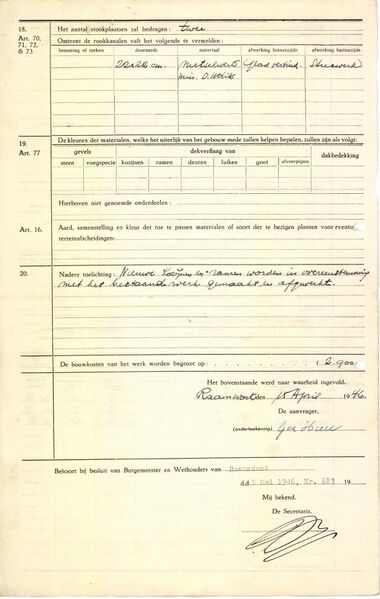 18.
Art. 70,
71, 72,
& 73
Het aantal stookplaatsen zal bedragen : twee
Omtrent de rookkanalen valt het volgende te vermelden :
benaming of teeken doorsnede materiaal afwerking binnenzijde afwerking buitenzijde
cm. Metselwerk Glad
19.
Art. 77
De kleuren der materialen, welke het uiterlijk van het gebouw mede zullen helpen bepalen, zullen zijn als volgt:
gevels dekverflaag van dakbedekking
steen voegspecie kozijnen ramen deuren luiken goot afvoerpijpen
Hierboven niet genoemde onderdeelen :
Art. 16.
Aard, samenstelling en kleur der toe te passen materialen of soort der te bezigen planten voor
terreinafscheidingen:
20.
Nadere toelichting : Nieuwe kozijnen en ramen worden in overeenstemming
met het bestaande werk gemaakt en afgewerkt.
De bouwkosten van het werk worden begroot op : f 2.900
Het bovenstaande werd naar waarheid ingevuld,
15 April 1946.
De aanvrager,
(onderteekening)
Behoort bij besluit van Burgemeester en Wethouders van Raamsdonk
d.d. 2 Mei 1946, Nr. 683 19
Mij bekend.
De Secretaris.